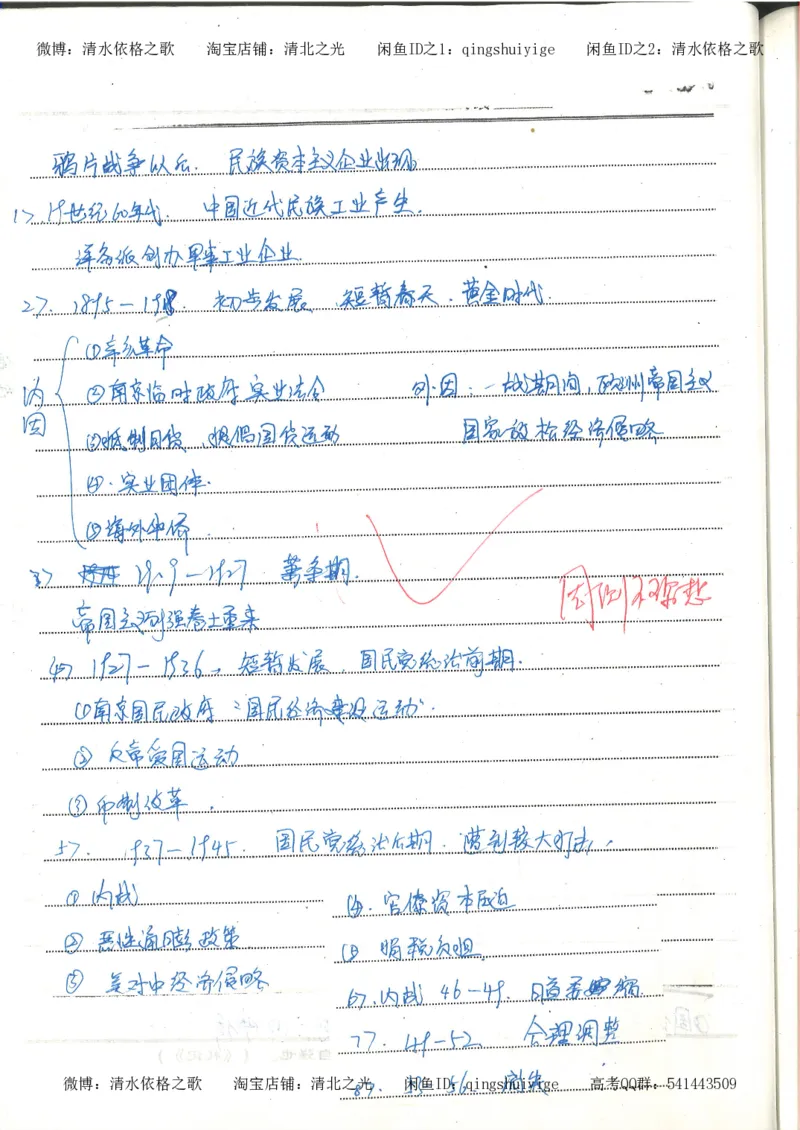 微博：清水依格之歌 淘宝店铺：清北之光 闲鱼ID之1：qingshuiyige 闲鱼ID之2：清水依格之歌
鸦片战争以后. 民族资本主义企业出现
1> 19世纪60年代. 中国近代民族工业产生.
洋务派创办军事工业企业.
2>. 1895—1918. 初步发展、短暂春天. 黄金时代.
内因
①辛亥革命
②南京临时政府 实业法令 外因：一战期间，欧洲帝国主义
③抵制日货、提倡国货运动 国家放松经济侵略
④. 实业团体.
⑤海外华侨.
3> 1919—1927 萧条期.
帝国主义列强卷土重来
4> 1927—1936. 短暂发展. 国民党统治前期.
①南京国民政府“国民经济建设运动”.
② 反帝爱国运动
③ 币制改革.
5>. 1937—1945. 国民党统治后期. 遭到较大打击.
① 内战 ④. 官僚资本压迫
② 恶性通膨政策 ⑤ 捐税负担
③ 美对中经济侵略 6>.内战 46—49.
7>. 49—52 合理调整
微博：清水依格之歌 淘宝店铺：清北之光 闲鱼ID：qingshuiyige 高考QQ群：541443509